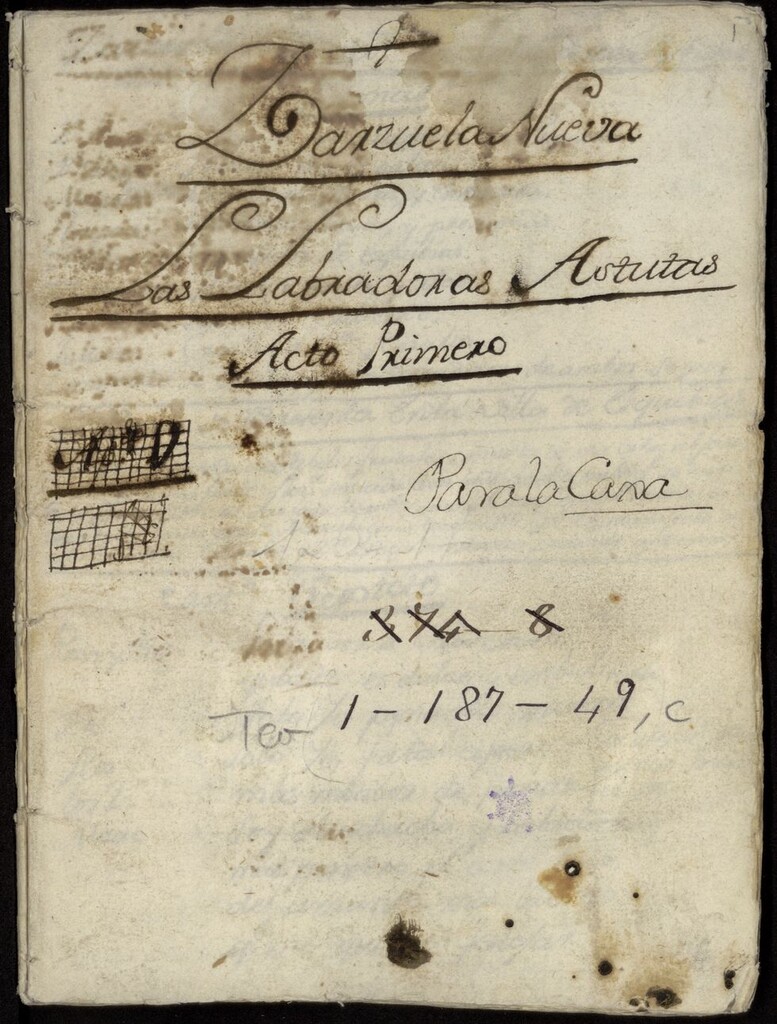 1
Zarzuela Nueva
Las Labradoras Astutas
Acto Primero
Para la Casa
374 8
Tea 1-187-49, c